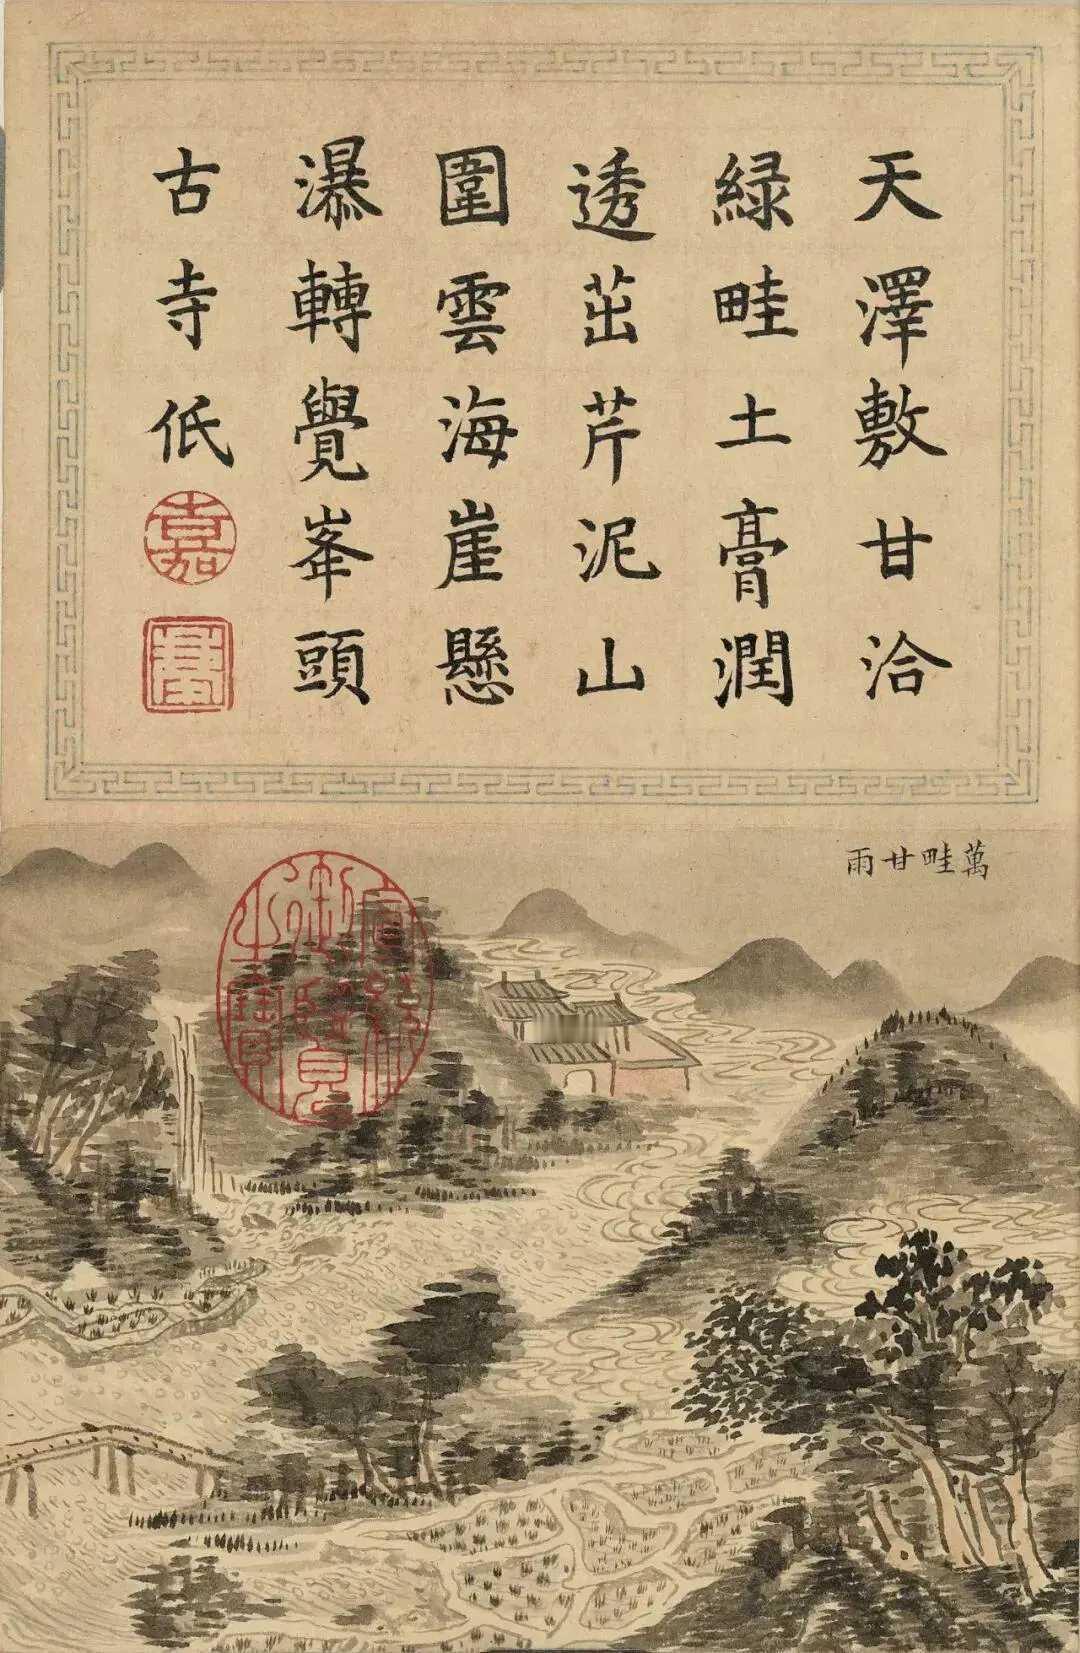 天澤敷甘洽
綠畦土膏潤
透茁芹泥山
圍雲海崖懸
瀑轉覺峯頭
古寺低
嘉
萬畦甘雨
宣統御覽之寶